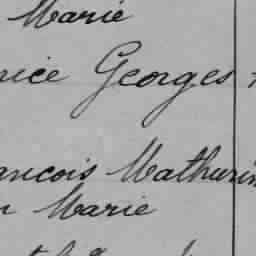 Marie
rice Georges
ancois Mathurin
n Marie